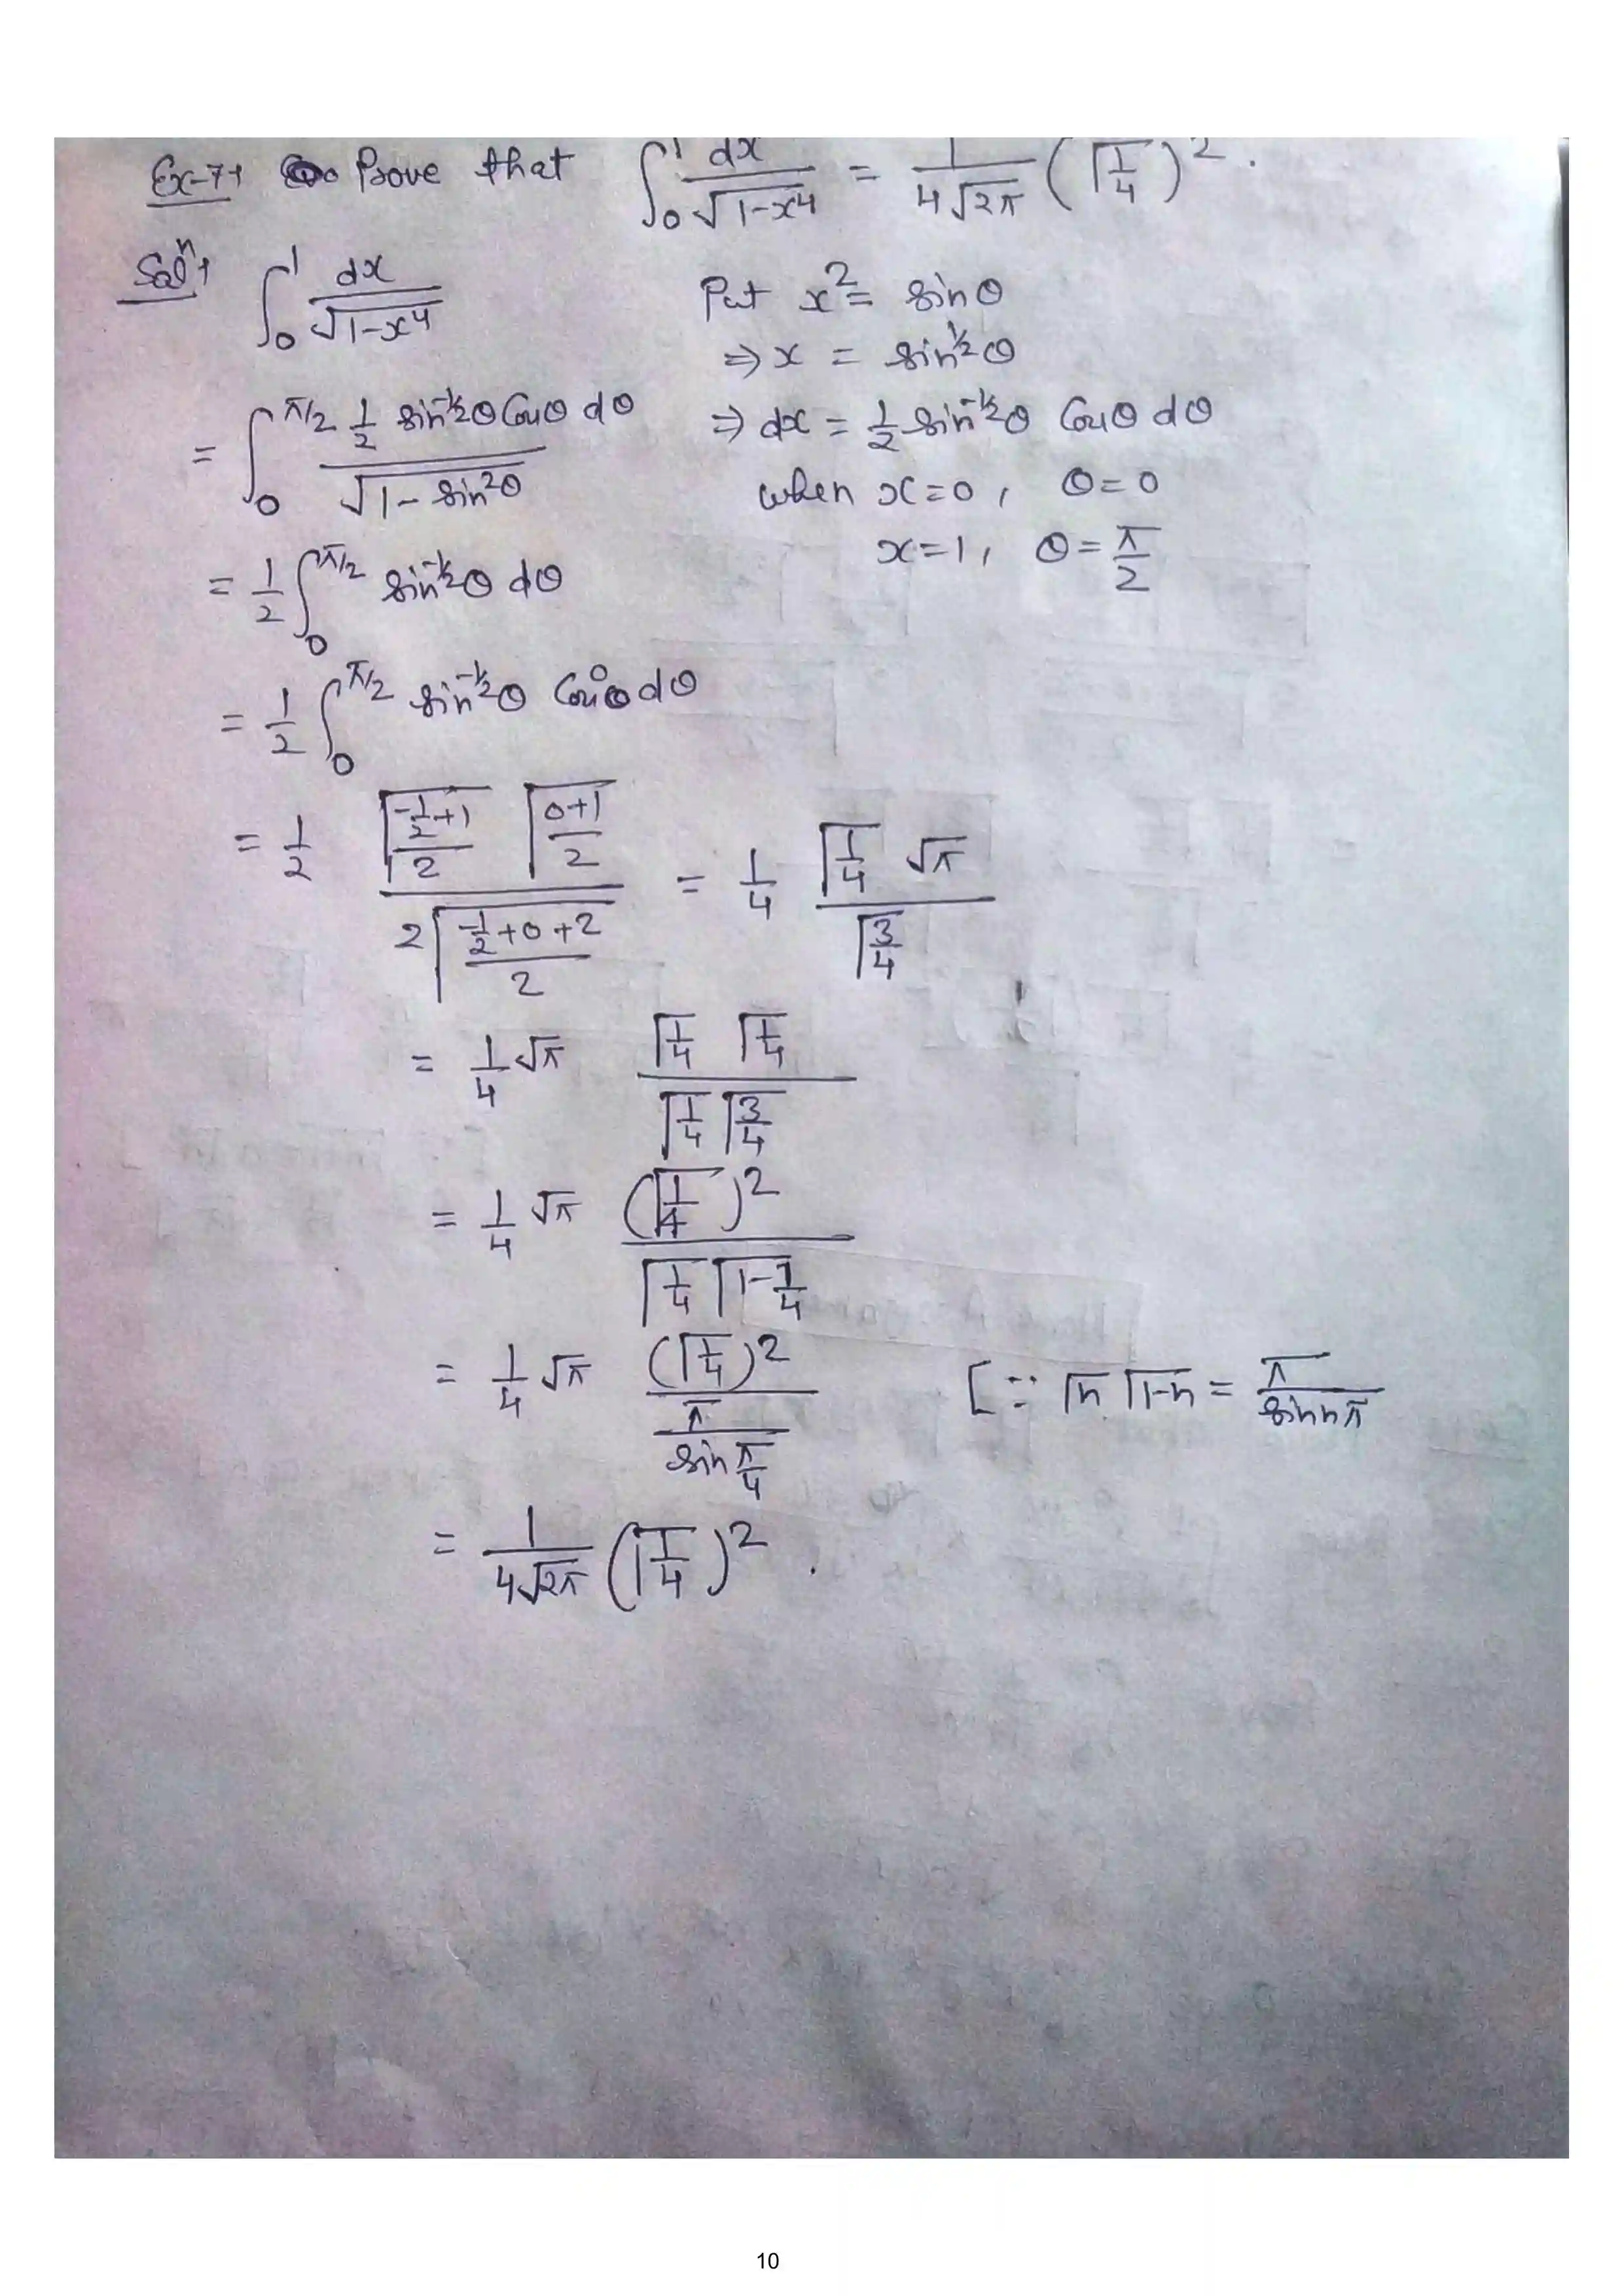 Ex-7→ Prove that ∫₀¹ dx/√(1-x⁴) = 1/(4√(2π)) (Γ(1/4))².
Solⁿ→ ∫₀¹ dx/√(1-x⁴) Put x² = sinθ
⇒ x = sin^(1/2)θ
= ∫₀^(π/2) (1/2 sin^(-1/2)θ Cosθ dθ)/√(1-sin²θ) ⇒ dx = 1/2 sin^(-1/2)θ Cosθ dθ
when x=0, θ=0
x=1, θ=π/2
= 1/2 ∫₀^(π/2) sin^(-1/2)θ dθ
= 1/2 ∫₀^(π/2) sin^(-1/2)θ Cos⁰θ dθ
= 1/2 (Γ((-1/2+1)/2) Γ((0+1)/2))/(2Γ((-1/2+0+2)/2)) = 1/4 (Γ(1/4) √π)/Γ(3/4)
= 1/4 √π (Γ(1/4) Γ(1/4))/(Γ(1/4) Γ(3/4))
= 1/4 √π (Γ(1/4))²/(Γ(1/4) Γ(1-1/4))
= 1/4 √π (Γ(1/4))²/(π/sin(π/4)) [∵ Γn Γ(1-n) = π/sin nπ
= 1/(4√(2π)) (Γ(1/4))².
10